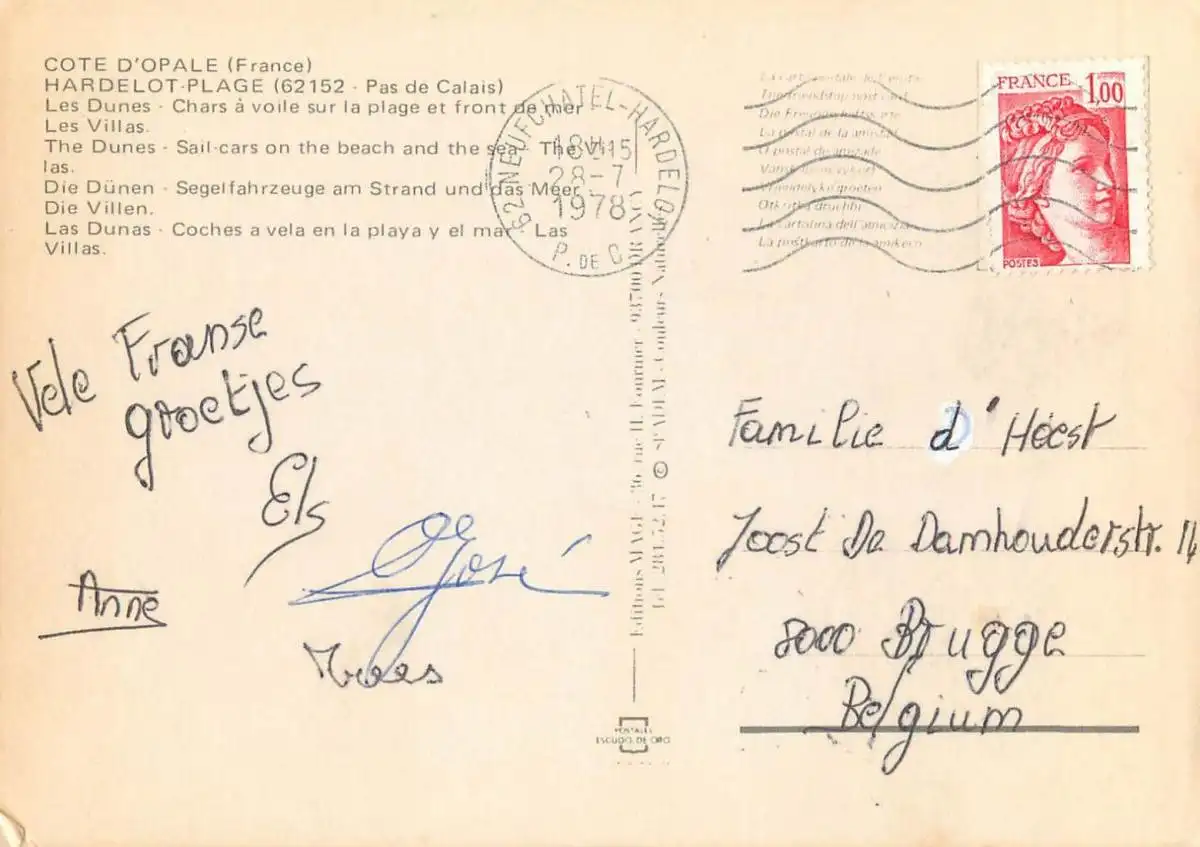 COTE D'OPALE (France)
HARDELOT-PLAGE (62152 - Pas de Calais)
Les Dunes - Chars à voile sur la plage et front de mer
Les Villas.
The Dunes - Sail-cars on the beach and the sea - The Vil-
las.
Die Dünen - Segelfahrzeuge am Strand und das Meer -
Die Villen.
Las Dunas - Coches a vela en la playa y el mar - Las
Villas.
62 NEUFCHATEL-HARDELOT
18H15
28-7
1978
P. DE C.
The friendship post card
La postal de la amistad
O postal de amizade
Vriendelijke groeten
La cartolina dell'amicizia
La poŝtkarto de la amikeco
FRANCE 1,00
POSTES
Vele Franse
groetjes
Els
José
Anne
Editions MAGE - 36, rue H. Fournier - 93700 DRANCY
Tél. 284.52.17 © SPADEM - Couleurs Naturelles
POSTALES
ESCUDO DE ORO
Familie d'Héést
Joost De Damhouderstr. 14
8000 Brugge
Belgium